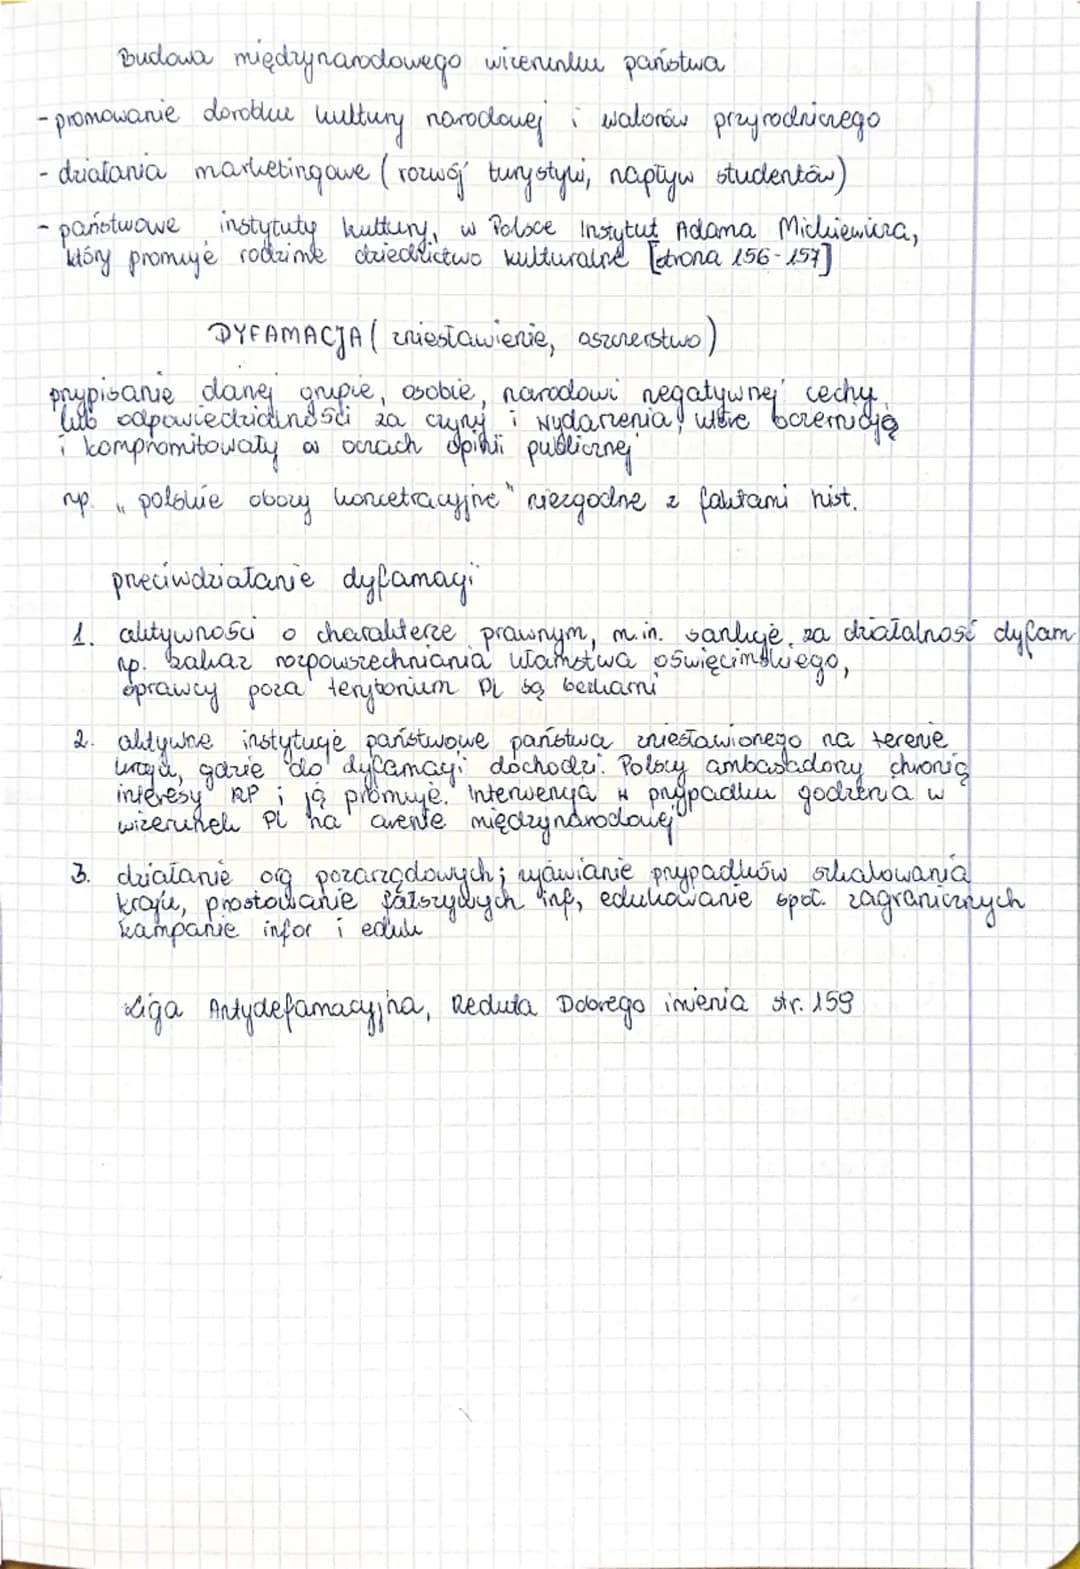 Budowa międzynarodowego wizerunku państwa
- promowanie dorobku kultury narodowej i walorów przyrodniczego
- działania marketingowe (rozwój turystyki, napływ studentów)
- państwowe instytuty kultury, w Polsce Instytut Adama Mickiewicza,
który promuje rodzime dziedzictwo kulturalne [strona 156-157]
DYFAMACJA (zniesławienie, oszczerstwo)
przypisanie danej grupie, osobie, narodowi negatywnej cechy
lub odpowiedzialności za czyny i wydarzenia, które oczerniają
i kompromitowały w oczach opinii publicznej
np. „polskie obozy koncetracyjne" niezgodne z faktami hist.
przeciwdziałanie dyfamacji
1. aktywności o charakterze prawnym, m.in. sankcje za działalność dyfam
np. zakaz rozpowszechniania kłamstwa oświęcimskiego,
oprawcy poza terytorium PL są bezkarni
2. aktywne instytucje państwowe państwa zniesławionego na terenie
kraju, gdzie do dyfamacji dochodzi. Polscy ambasadorzy chronią
interesy RP i ją promuje. Interwencja w przypadku godzenia w
wizerunek PL na arenie międzynarodowej
3. działanie org pozarządowych; ujawianie przypadków szkalowania
kraju, prostowanie fałszywych inf, edukowanie społ. zagranicznych
kampanie infor i eduk
Liga Antydefamacyjna, Reduta Dobrego imienia str. 159